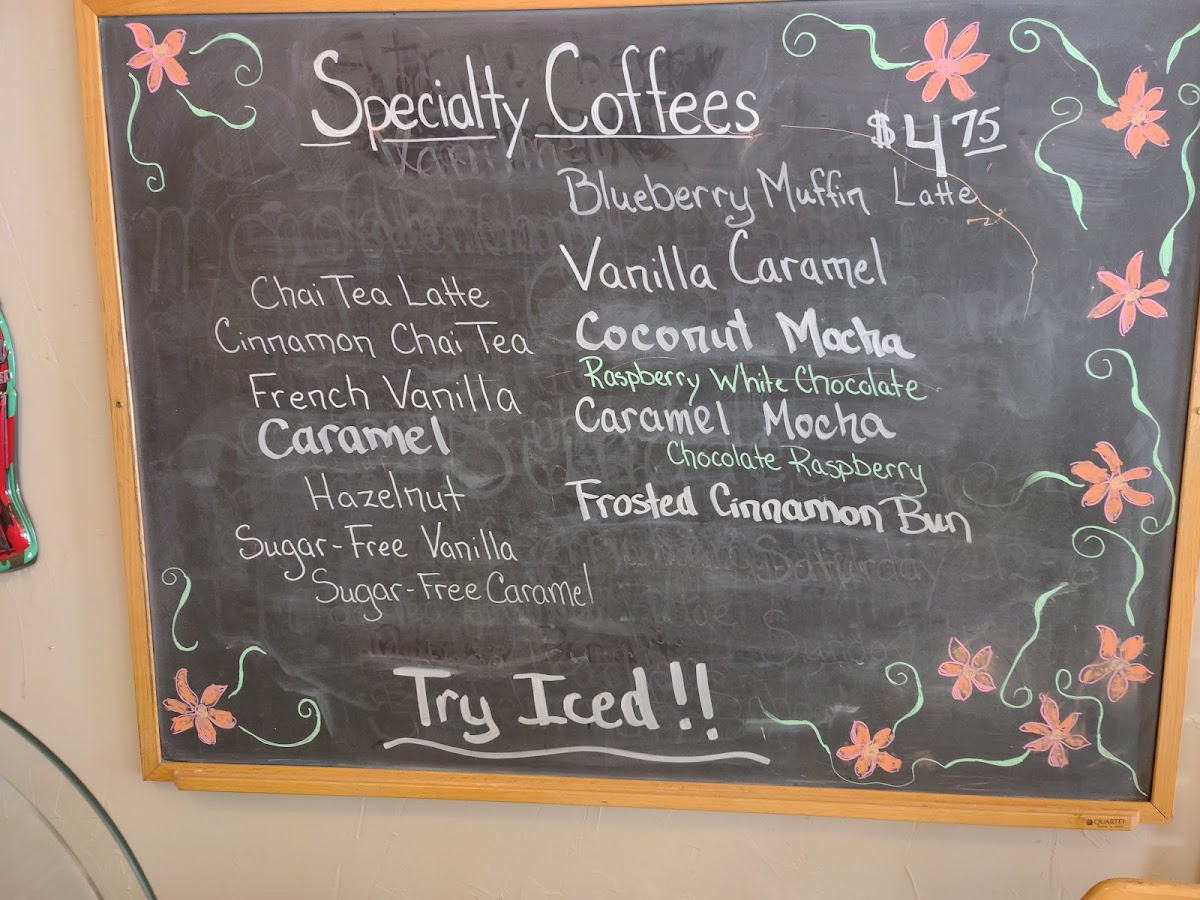 Specialty Coffees
$4 75
Blueberry Muffin Latte
Vanilla Caramel
Coconut Mocha
Raspberry White Chocolate
Caramel Mocha
Chocolate Raspberry
Frosted Cinnamon Bun
Chai Tea Latte
Cinnamon Chai Tea
French Vanilla
Caramel
Hazelnut
Sugar-Free Vanilla
Sugar-Free Caramel
Try Iced!!
Saturday
QUARTET